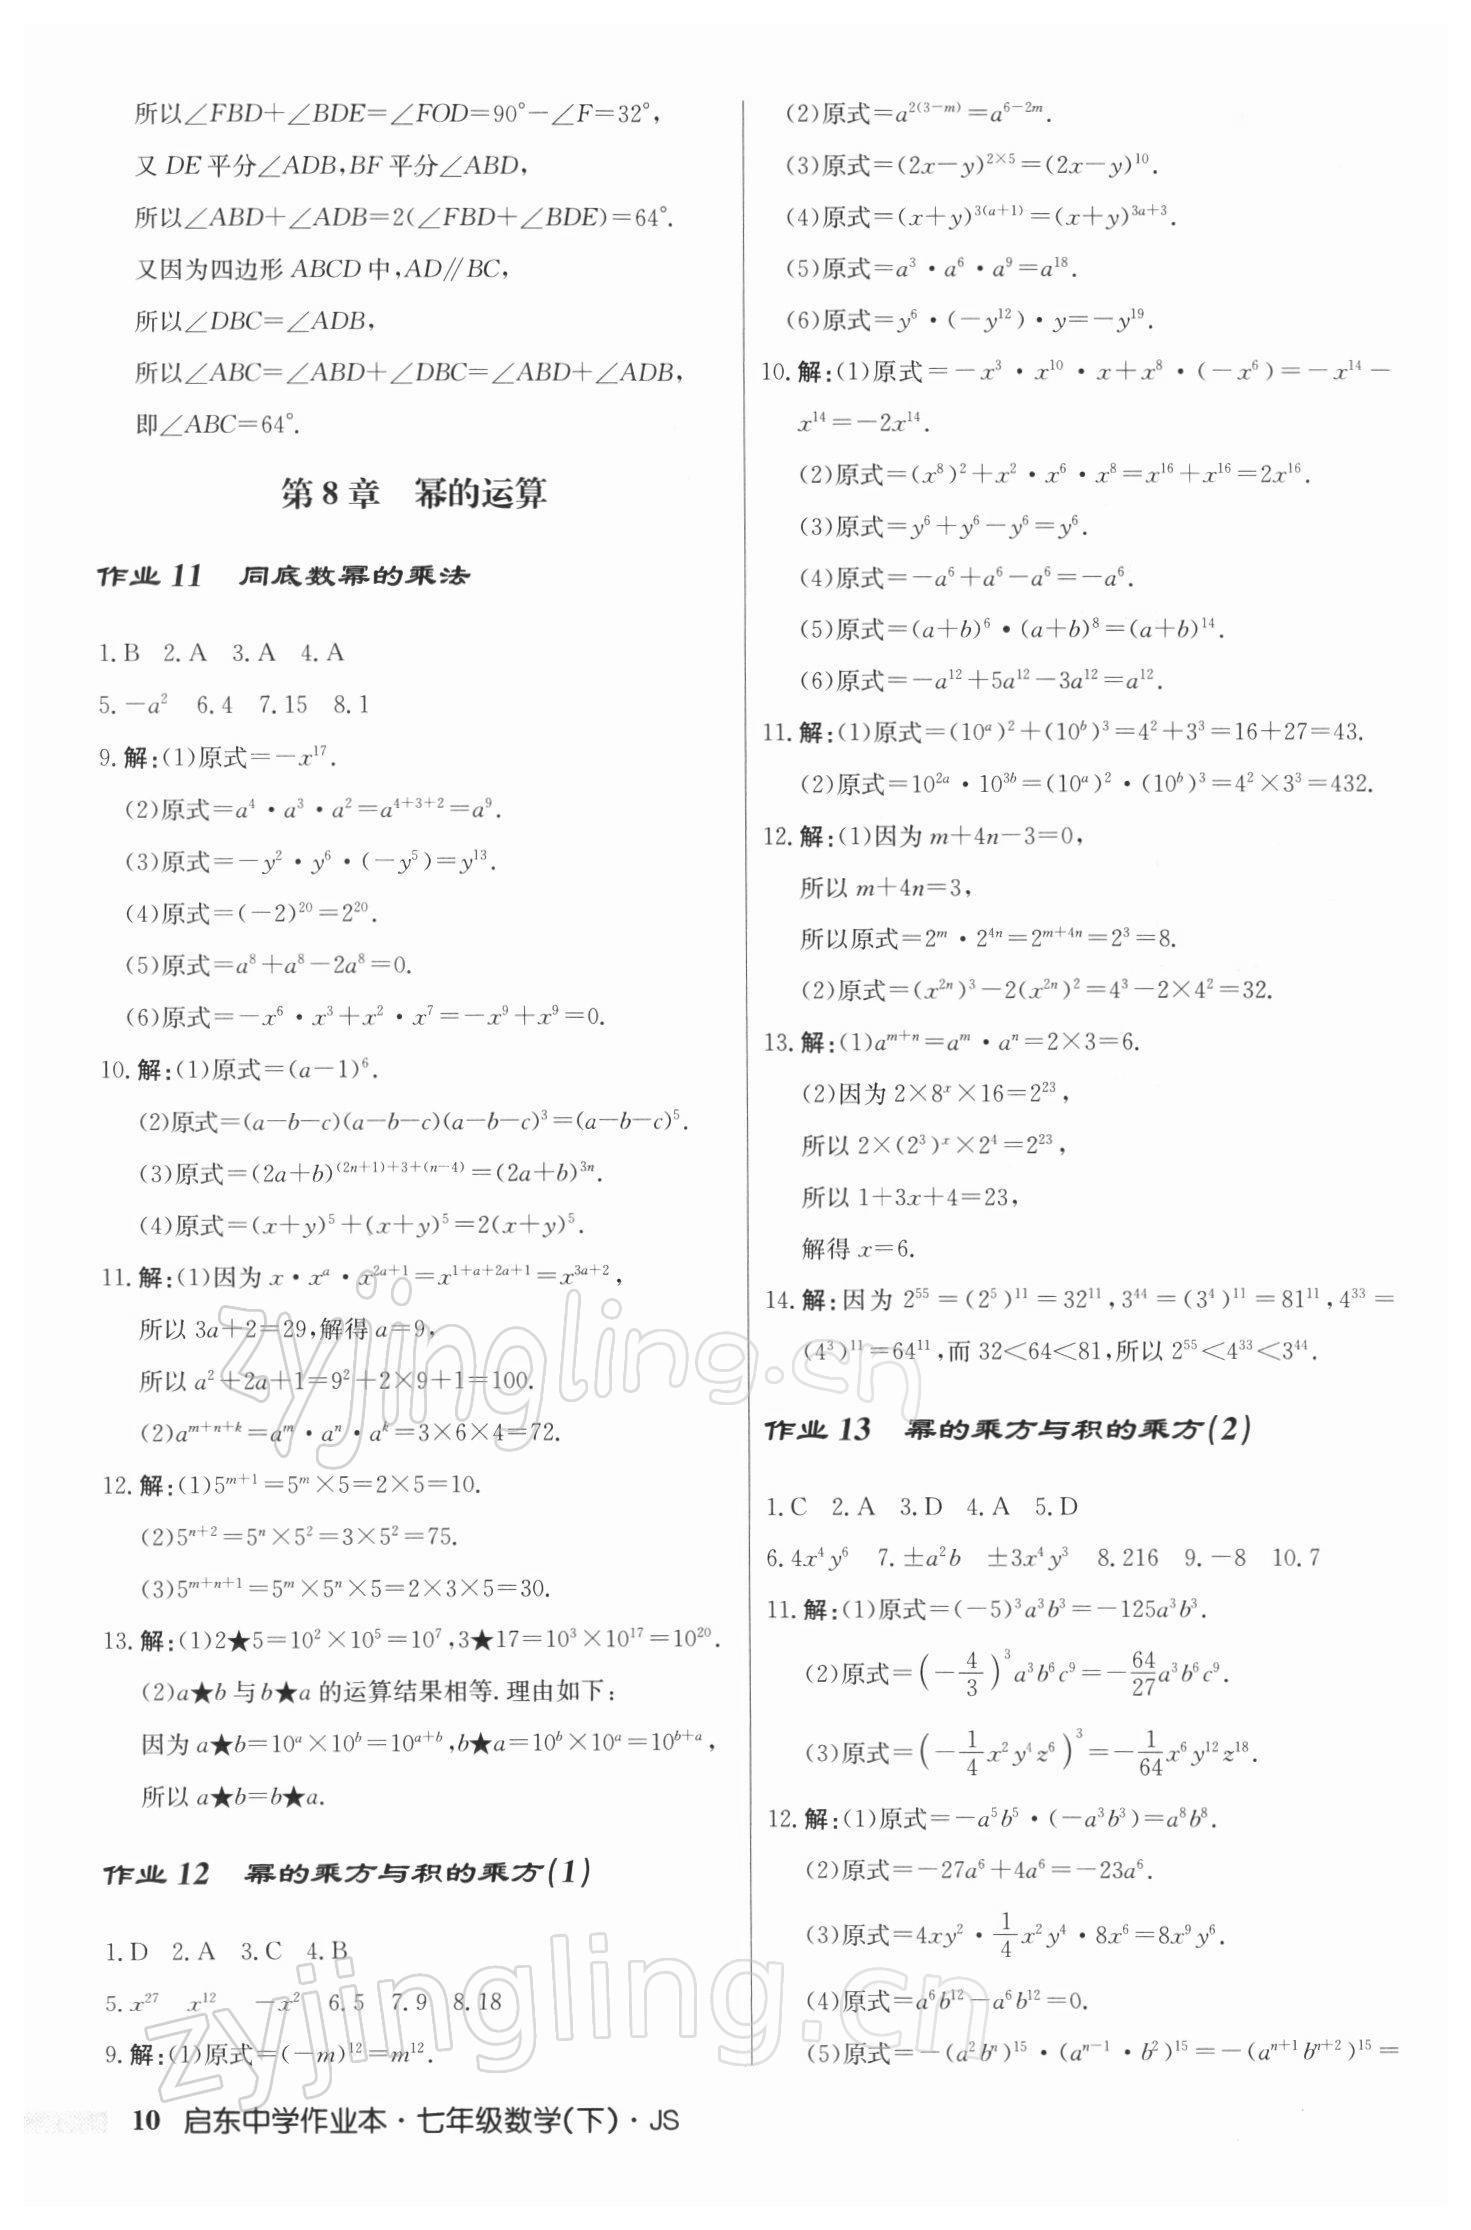 所以∠FBD+∠BDE=∠FOD=90°-∠F=32°,
又 DE 平分∠ADB,BF 平分∠ABD,
所以∠ABD+∠ADB=2(∠FBD+∠BDE)=64°.
又因为四边形 ABCD 中,AD∥BC,
所以∠DBC=∠ADB,
所以∠ABC=∠ABD+∠DBC=∠ABD+∠ADB,
即∠ABC=64°.
第 8 章 幂的运算
作业 11 同底数幂的乘法
1. B 2. A 3. A 4. A
5. -a² 6. 4 7. 15 8. 1
9. 解:(1)原式=-x¹⁷.
(2)原式=a⁴·a³·a²=a⁴⁺³⁺²=a⁹.
(3)原式=-y²·y⁶·(-y⁵)=y¹³.
(4)原式=(-2)²⁰=2²⁰.
(5)原式=a⁸+a⁸-2a⁸=0.
(6)原式=-x⁶·x³+x²·x⁷=-x⁹+x⁹=0.
10. 解:(1)原式=(a-1)⁶.
(2)原式=(a-b-c)(a-b-c)(a-b-c)³=(a-b-c)⁵.
(3)原式=(2a+b)^{(2n+1)+3+(n-4)}=(2a+b)^{3n}.
(4)原式=(x+y)⁵+(x+y)⁵=2(x+y)⁵.
11. 解:(1)因为 x·x^{a}·x^{2a+1}=x^{1+a+2a+1}=x^{3a+2},
所以 3a+2=29,解得 a=9,
所以 a²+2a+1=9²+2×9+1=100.
(2)a^{m+n+k}=a^{m}·a^{n}·a^{k}=3×6×4=72.
12. 解:(1)5^{m+1}=5^{m}×5=2×5=10.
(2)5^{n+2}=5^{n}×5²=3×5²=75.
(3)5^{m+n+1}=5^{m}×5^{n}×5=2×3×5=30.
13. 解:(1)2★5=10²×10⁵=10⁷,3★17=10³×10¹⁷=10²⁰.
(2)a★b 与 b★a 的运算结果相等. 理由如下:
因为 a★b=10^{a}×10^{b}=10^{a+b},b★a=10^{b}×10^{a}=10^{b+a},
所以 a★b=b★a.
作业 12 幂的乘方与积的乘方(1)
1. D 2. A 3. C 4. B
5. x²⁷ x¹² -x² 6. 5 7. 9 8. 18
9. 解:(1)原式=(-m)¹²=m¹².
(2)原式=a^{2(3-m)}=a^{6-2m}.
(3)原式=(2x-y)^{2×5}=(2x-y)¹⁰.
(4)原式=(x+y)^{3(a+1)}=(x+y)^{3a+3}.
(5)原式=a³·a⁶·a⁹=a¹⁸.
(6)原式=y⁶·(-y¹²)·y=-y¹⁹.
10. 解:(1)原式=-x³·x¹⁰·x+x⁸·(-x⁶)=-x¹⁴-
x¹⁴=-2x¹⁴.
(2)原式=(x⁸)²+x²·x⁶·x⁸=x¹⁶+x¹⁶=2x¹⁶.
(3)原式=y⁶+y⁶-y⁶=y⁶.
(4)原式=-a⁶+a⁶-a⁶=-a⁶.
(5)原式=(a+b)⁶·(a+b)⁸=(a+b)¹⁴.
(6)原式=-a¹²+5a¹²-3a¹²=a¹².
11. 解:(1)原式=(10^{a})²+(10^{b})³=4²+3³=16+27=43.
(2)原式=10^{2a}·10^{3b}=(10^{a})²·(10^{b})³=4²×3³=432.
12. 解:(1)因为 m+4n-3=0,
所以 m+4n=3,
所以原式=2^{m}·2^{4n}=2^{m+4n}=2³=8.
(2)原式=(x^{2n})³-2(x^{2n})²=4³-2×4²=32.
13. 解:(1)a^{m+n}=a^{m}·a^{n}=2×3=6.
(2)因为 2×8^{x}×16=2²³,
所以 2×(2³)^{x}×2⁴=2²³,
所以 1+3x+4=23,
解得 x=6.
14. 解:因为 2⁵⁵=(2⁵)¹¹=32¹¹,3⁴⁴=(3⁴)¹¹=81¹¹,4³³=
(4³)¹¹=64¹¹,而 32<64<81,所以 2⁵⁵<4³³<3⁴⁴.
作业 13 幂的乘方与积的乘方(2)
1. C 2. A 3. D 4. A 5. D
6. 4x⁴y⁶ 7. ±a²b ±3x⁴y³ 8. 216 9. -8 10. 7
11. 解:(1)原式=(-5)³a³b³=-125a³b³.
(2)原式=(-4/3)³a³b⁶c⁹=-64/27a³b⁶c⁹.
(3)原式=(-1/4x²y⁴z⁶)³=-1/64x⁶y¹²z¹⁸.
12. 解:(1)原式=-a⁵b⁵·(-a³b³)=a⁸b⁸.
(2)原式=-27a⁶+4a⁶=-23a⁶.
(3)原式=4xy²·1/4x²y⁴·8x⁶=8x⁹y⁶.
(4)原式=a⁶b¹²-a⁶b¹²=0.
(5)原式=-(a²b^{n})¹⁵·(a^{n-1}·b²)¹⁵=-(a^{n+1}b^{n+2})¹⁵=
10 启东中学作业本·七年级数学(下)·JS
zyjingling.cn
zyjingling.cn